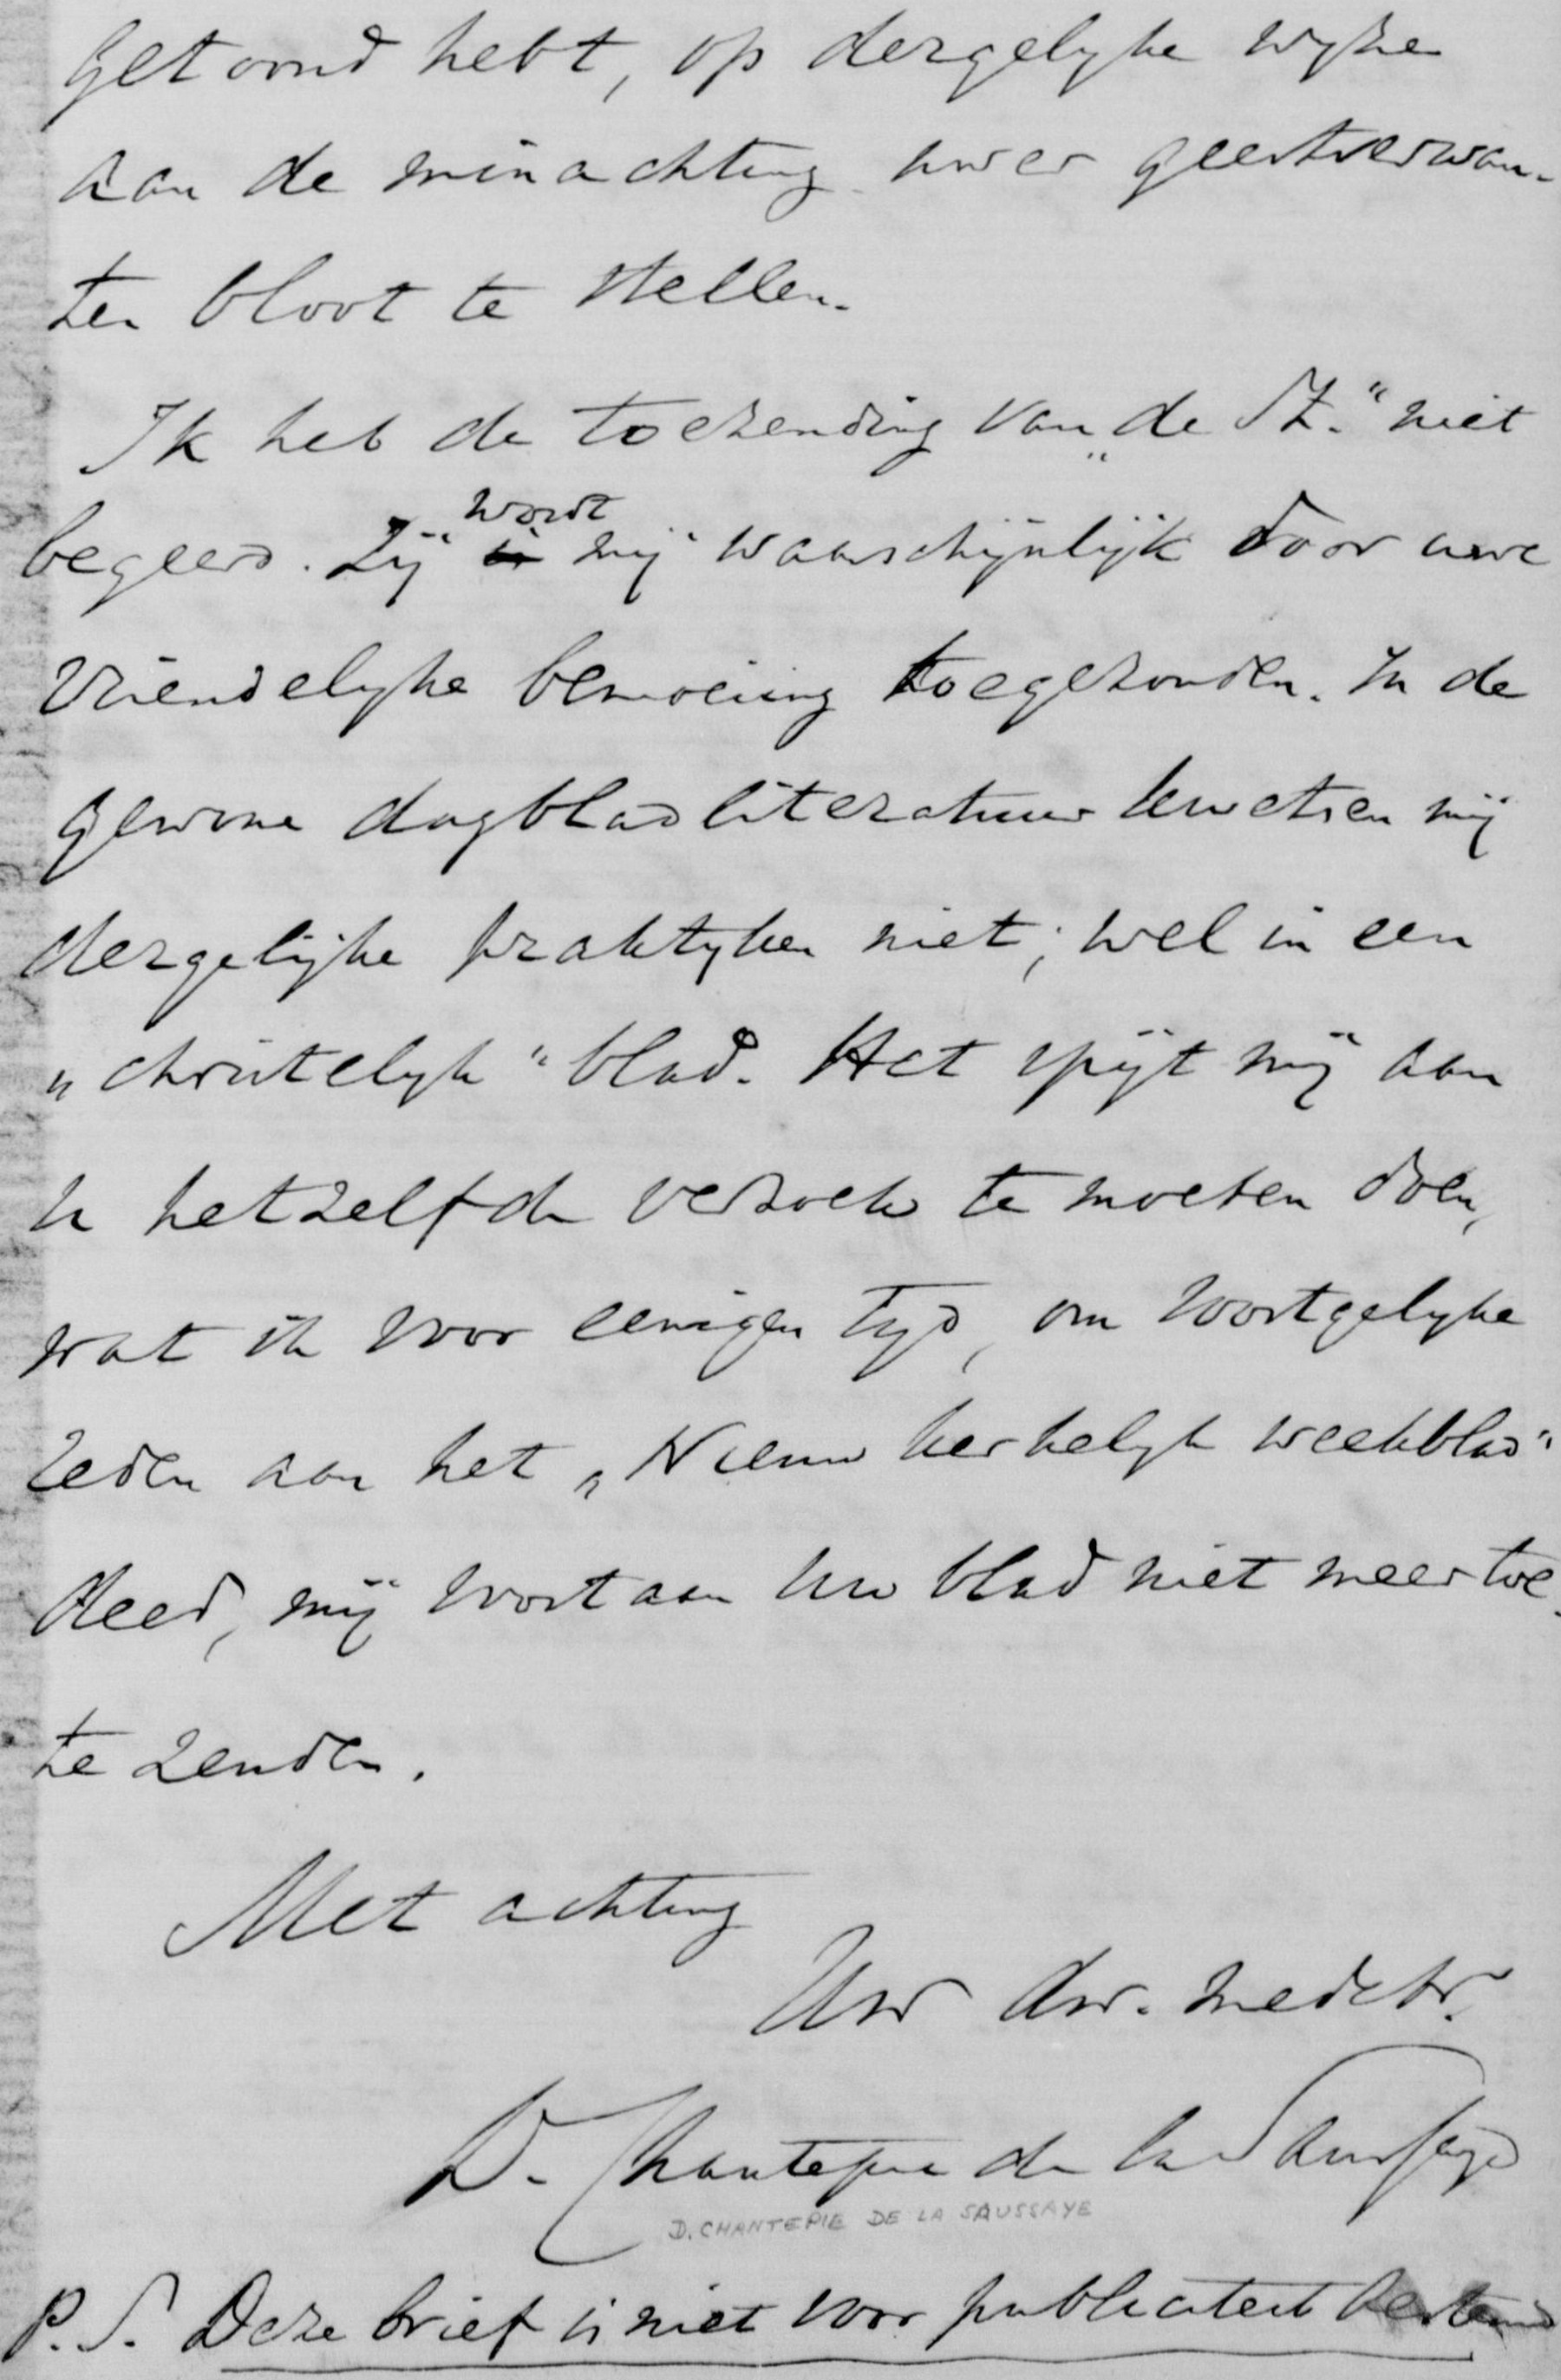 getoond hebt, op dergelyke wyze
aan de minachting uwer geestverwan-
ten bloot te stellen.
Ik heb de toezending van „de St." niet
begeerd. Zij wordt mij waarschijnlijk door uwe
vriendelyke bemoeiing toegezonden. In de
gewone dagbladliteratuur kwetsen mij
dergelijke praktyken niet; wel in een
„christelyk" blad. Het spijt mij aan
U hetzelfde verzoek te moeten doen,
wat ik voor eenigen tyd, om soortgelyke
reden aan het „Nieuw kerkelyk weekblad"
deed, mij voortaan uw blad niet meer toe
te zenden.
Met achting
Uw dw. medebr.
D. Chantepie de la Saussaye
D. CHANTEPIE DE LA SAUSSAYE
P.S. Deze brief is niet voor publiciteit bestemd